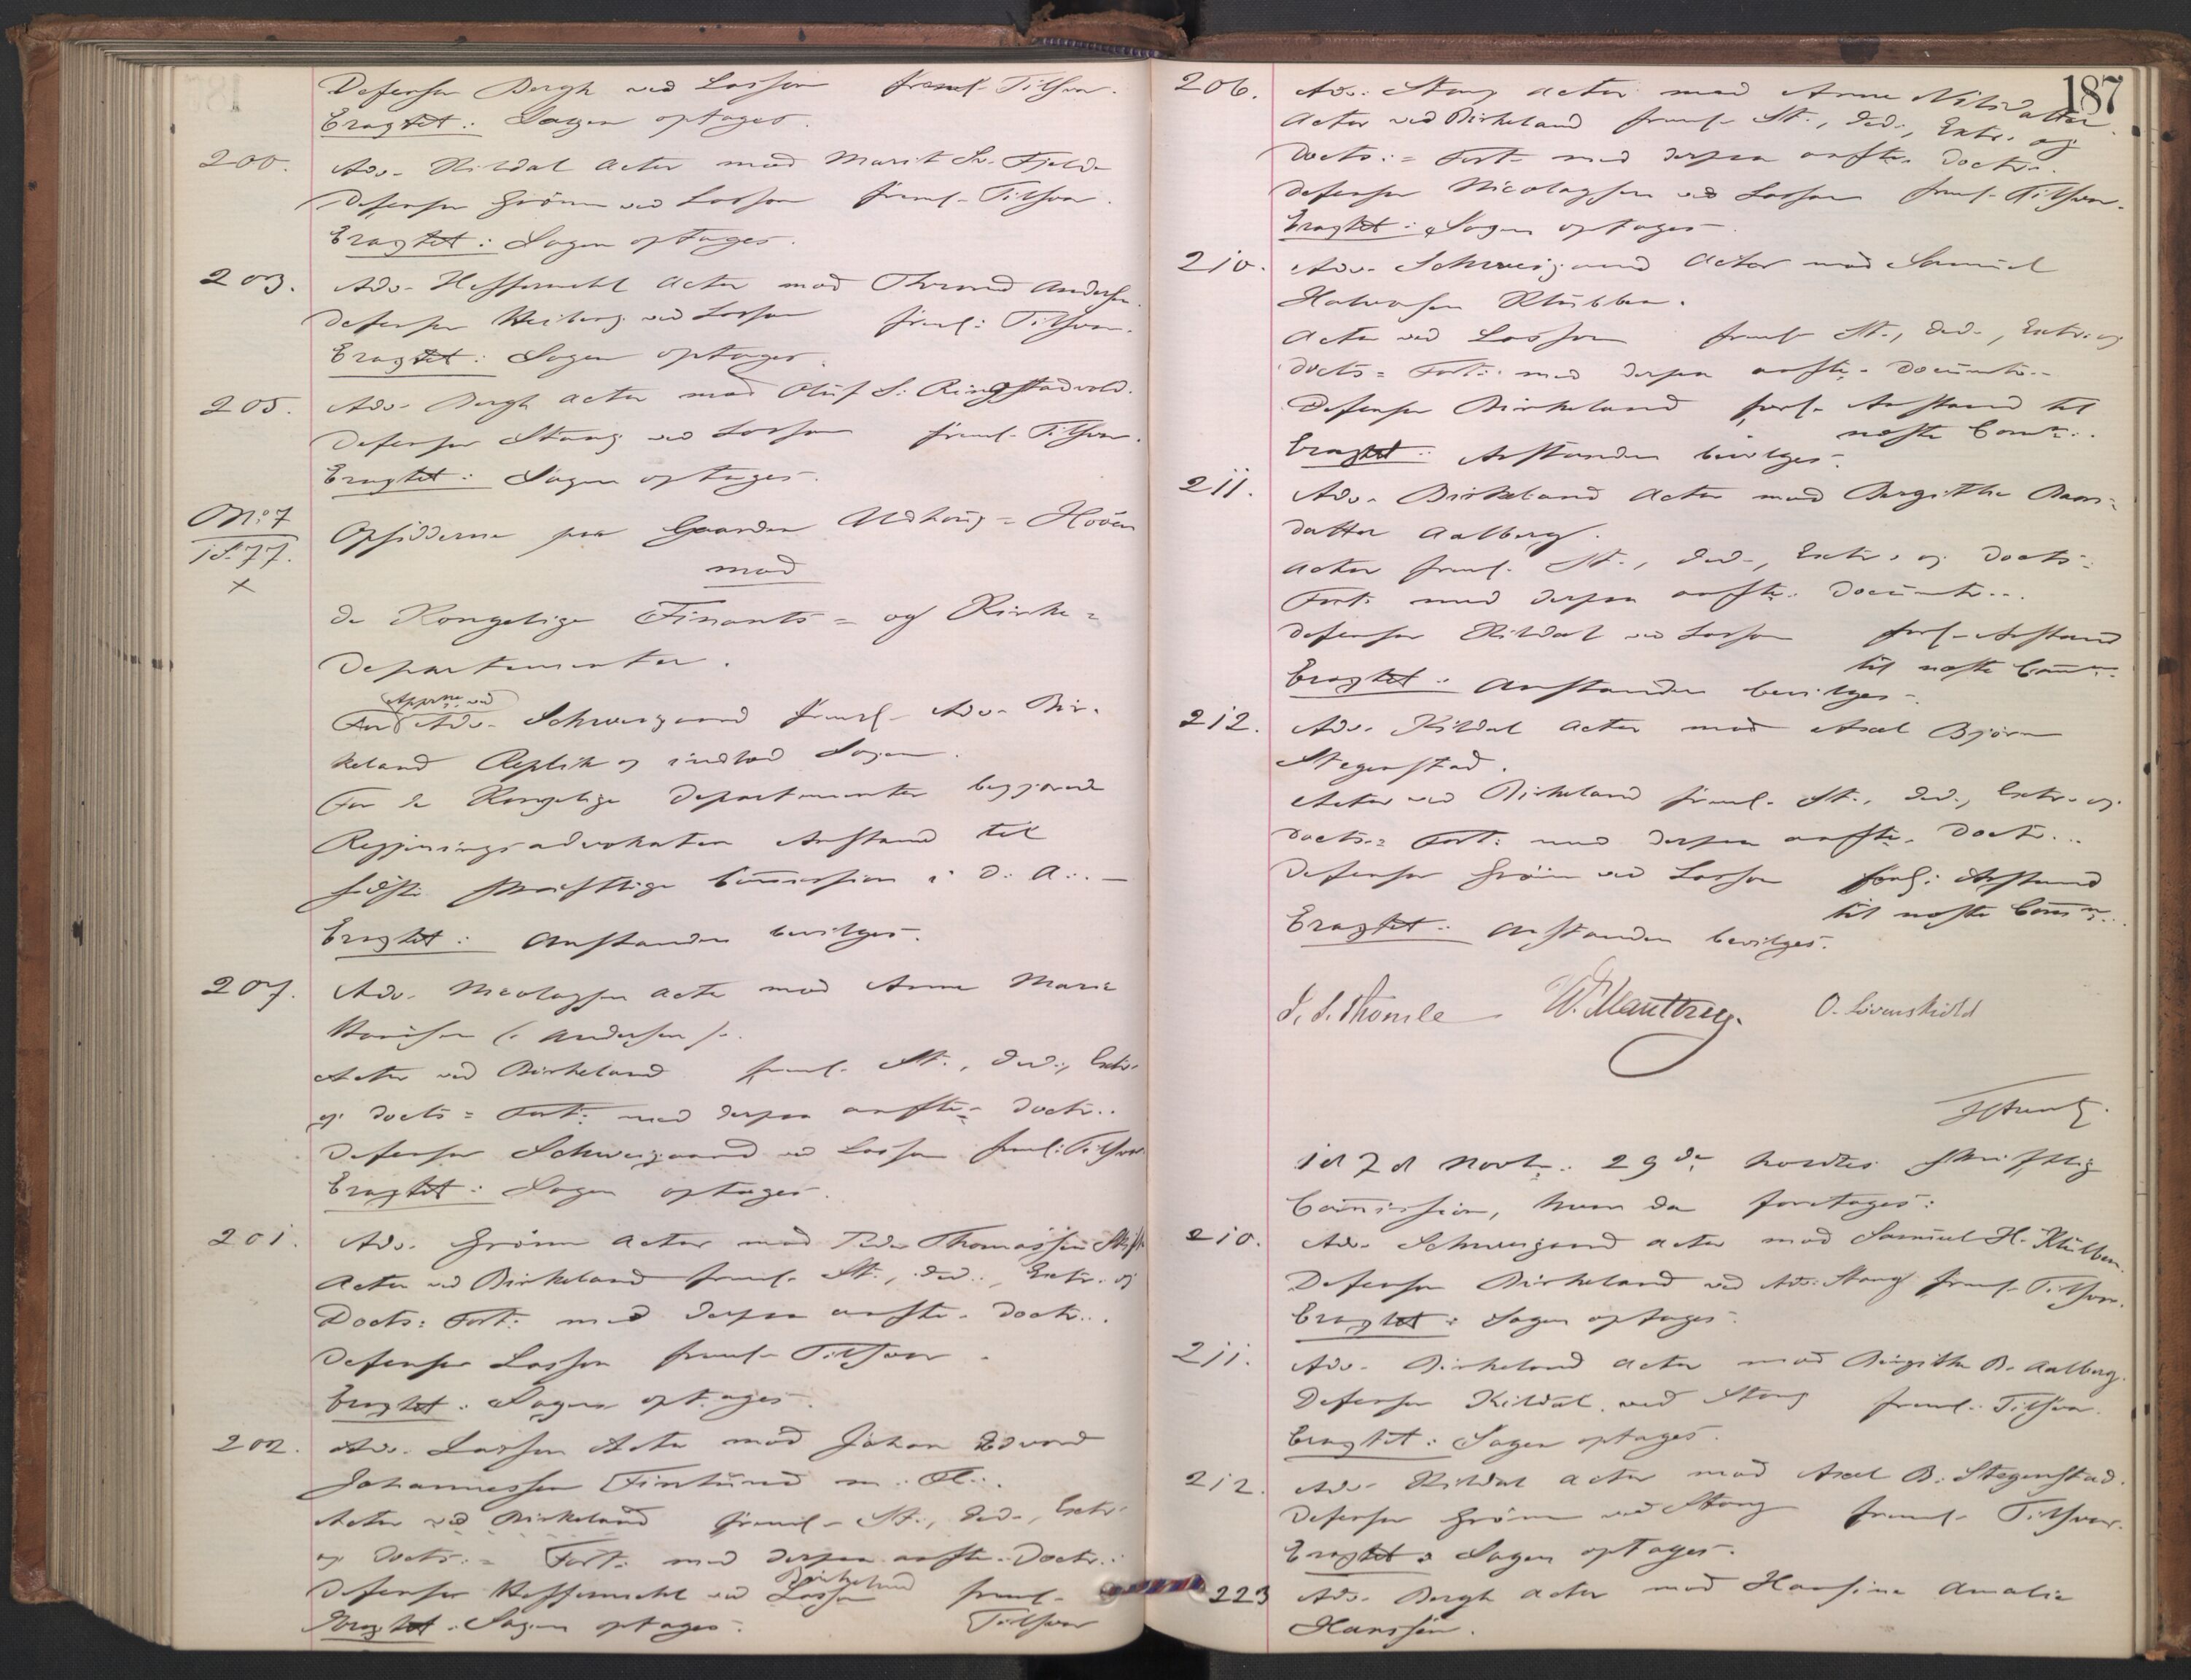 Defensor Bergh ved Lasson freml. Tilsvar.
Eragtet: Sagen optages.
200. Adv. Kildal Actor mod Marit Sr. Fjelde
Defensor Grönn ved Lasson freml. Tilsvar.
Eragtet: Sagen optages.
203. Adv. Hesselberg Actor mod Thrond Andersen.
Defensor Heiberg ved Lasson freml. Tilsvar.
Eragtet: Sagen optages.
205. Adv. Bergh Actor mod Oluf S. Ringstadvold.
Defensor Stang ved Lasson freml. Tilsvar.
Eragtet: Sagen optages.
No. 7
1877.
x
Opsidderne paa Gaarden
mod
de Kongelige Finants- og Kirke-
Departementer.
Apptne. ved
For Adv. Schweigaard freml. Adv. Bir-
keland Replik og indlod Sagen.
For de Kongelige Departementer begjærede
Regjeringsadvokaten Anstand til
sidste skriftlige Commission i d. A. —
Eragtet: Anstanden bevilges.
207. Adv. Nicolaysen Actor mod Anne Marie
(Andersen).
Actor ved Birkeland freml. St., Ded., Extr.
og Docts.- Fort. med derpaa anførte Doctr.
Defensor Schweigaard ved Lasson freml. Tilsvar
Eragtet: Sagen optages.
201. Adv. Grönn Actor mod Peder Thomassen
Actor ved Birkeland freml. St., Ded., Extr. og
Docts. Fort. med derpaa anførte Doctr.
Defensor Lasson freml. Tilsvar.
Eragtet: Sagen optages.
202. Adv. Lasson Actor mod Johan Edvard
Johannessen Finlund m. Fl.
Actor ved Birkeland freml. St., Ded., Extr.
og Docts.- Fort. med derpaa anførte Doctr.
Birkeland
Defensor ved Lasson freml.
Eragtet: Sagen optages. Tilsvar
187
206. Adv. Stang Actor mod Anne Nilsdatter.
Actor ved Birkeland freml. St., Ded., Extr. og
Docts.- Fort. med derpaa anførte Doctr.
Defensor Nicolaysen ved Lasson freml. Tilsvar.
Eragtet: Sagen optages.
210. Adv. Schweigaard Actor mod Samuel
Halvorsen Klubben.
Actor ved Lasson freml. St., Ded., Extr. og
Docts.- Fort. med derpaa anførte Documtr.
Defensor Birkeland forl. Anstand til
næste Comn.
Eragtet: Anstanden bevilges.
211. Adv. Birkeland Actor mod Bergithe
datter Aalberg.
Actor freml. St., Ded., Extr. og Docts.-
Fort. med derpaa anførte Documtr.
Defensor Kildal ved Lasson forl. Anstand
til næste Comn.
Eragtet: Anstanden bevilges.
212. Adv. Kildal Actor mod Axel Björn
Stegenstad.
Actor ved Birkeland freml. St., Ded., Extr. og
Docts.- Fort. med derpaa anførte Doctr.
Defensor Grönn ved Lasson forl. Anstand
til næste Comn.
Eragtet: Anstanden bevilges.
I. S. Thomle W. Manthey. O. Lövenskiold
1878 Novbr. 29de holdtes skriftlig
Commission, hvor da foretages:
210. Adv. Schweigaard Actor mod Samuel H. Klubben.
Defensor Birkeland ved Adv. Stang freml. Tilsvar.
Eragtet: Sagen optages.
211. Adv. Birkeland Actor mod Birgithe B. Aalberg.
Defensor Kildal ved Stang freml. Tilsvar.
Eragtet: Sagen optages.
212. Adv. Kildal Actor mod Axel B. Stegenstad.
Defensor Grönn ved Stang freml. Tilsvar.
Eragtet: Sagen optages.
223 Adv. Bergh Actor mod Hansine Amalie
Hanssen.